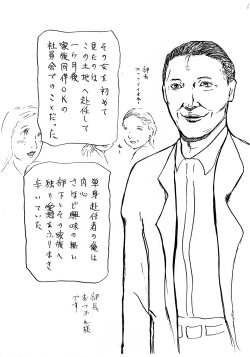 その女を初めて
見たのは
この土地へ赴任して
一ヶ月後
家族同伴OKの
社員会でのことだった
部長
カッコイイよネ
単身赴任者の俺は
内心
さほど興味の無い
部下とその家族へ
独り愛想をふりまき
歩いていた
部長
おつかれ様
です